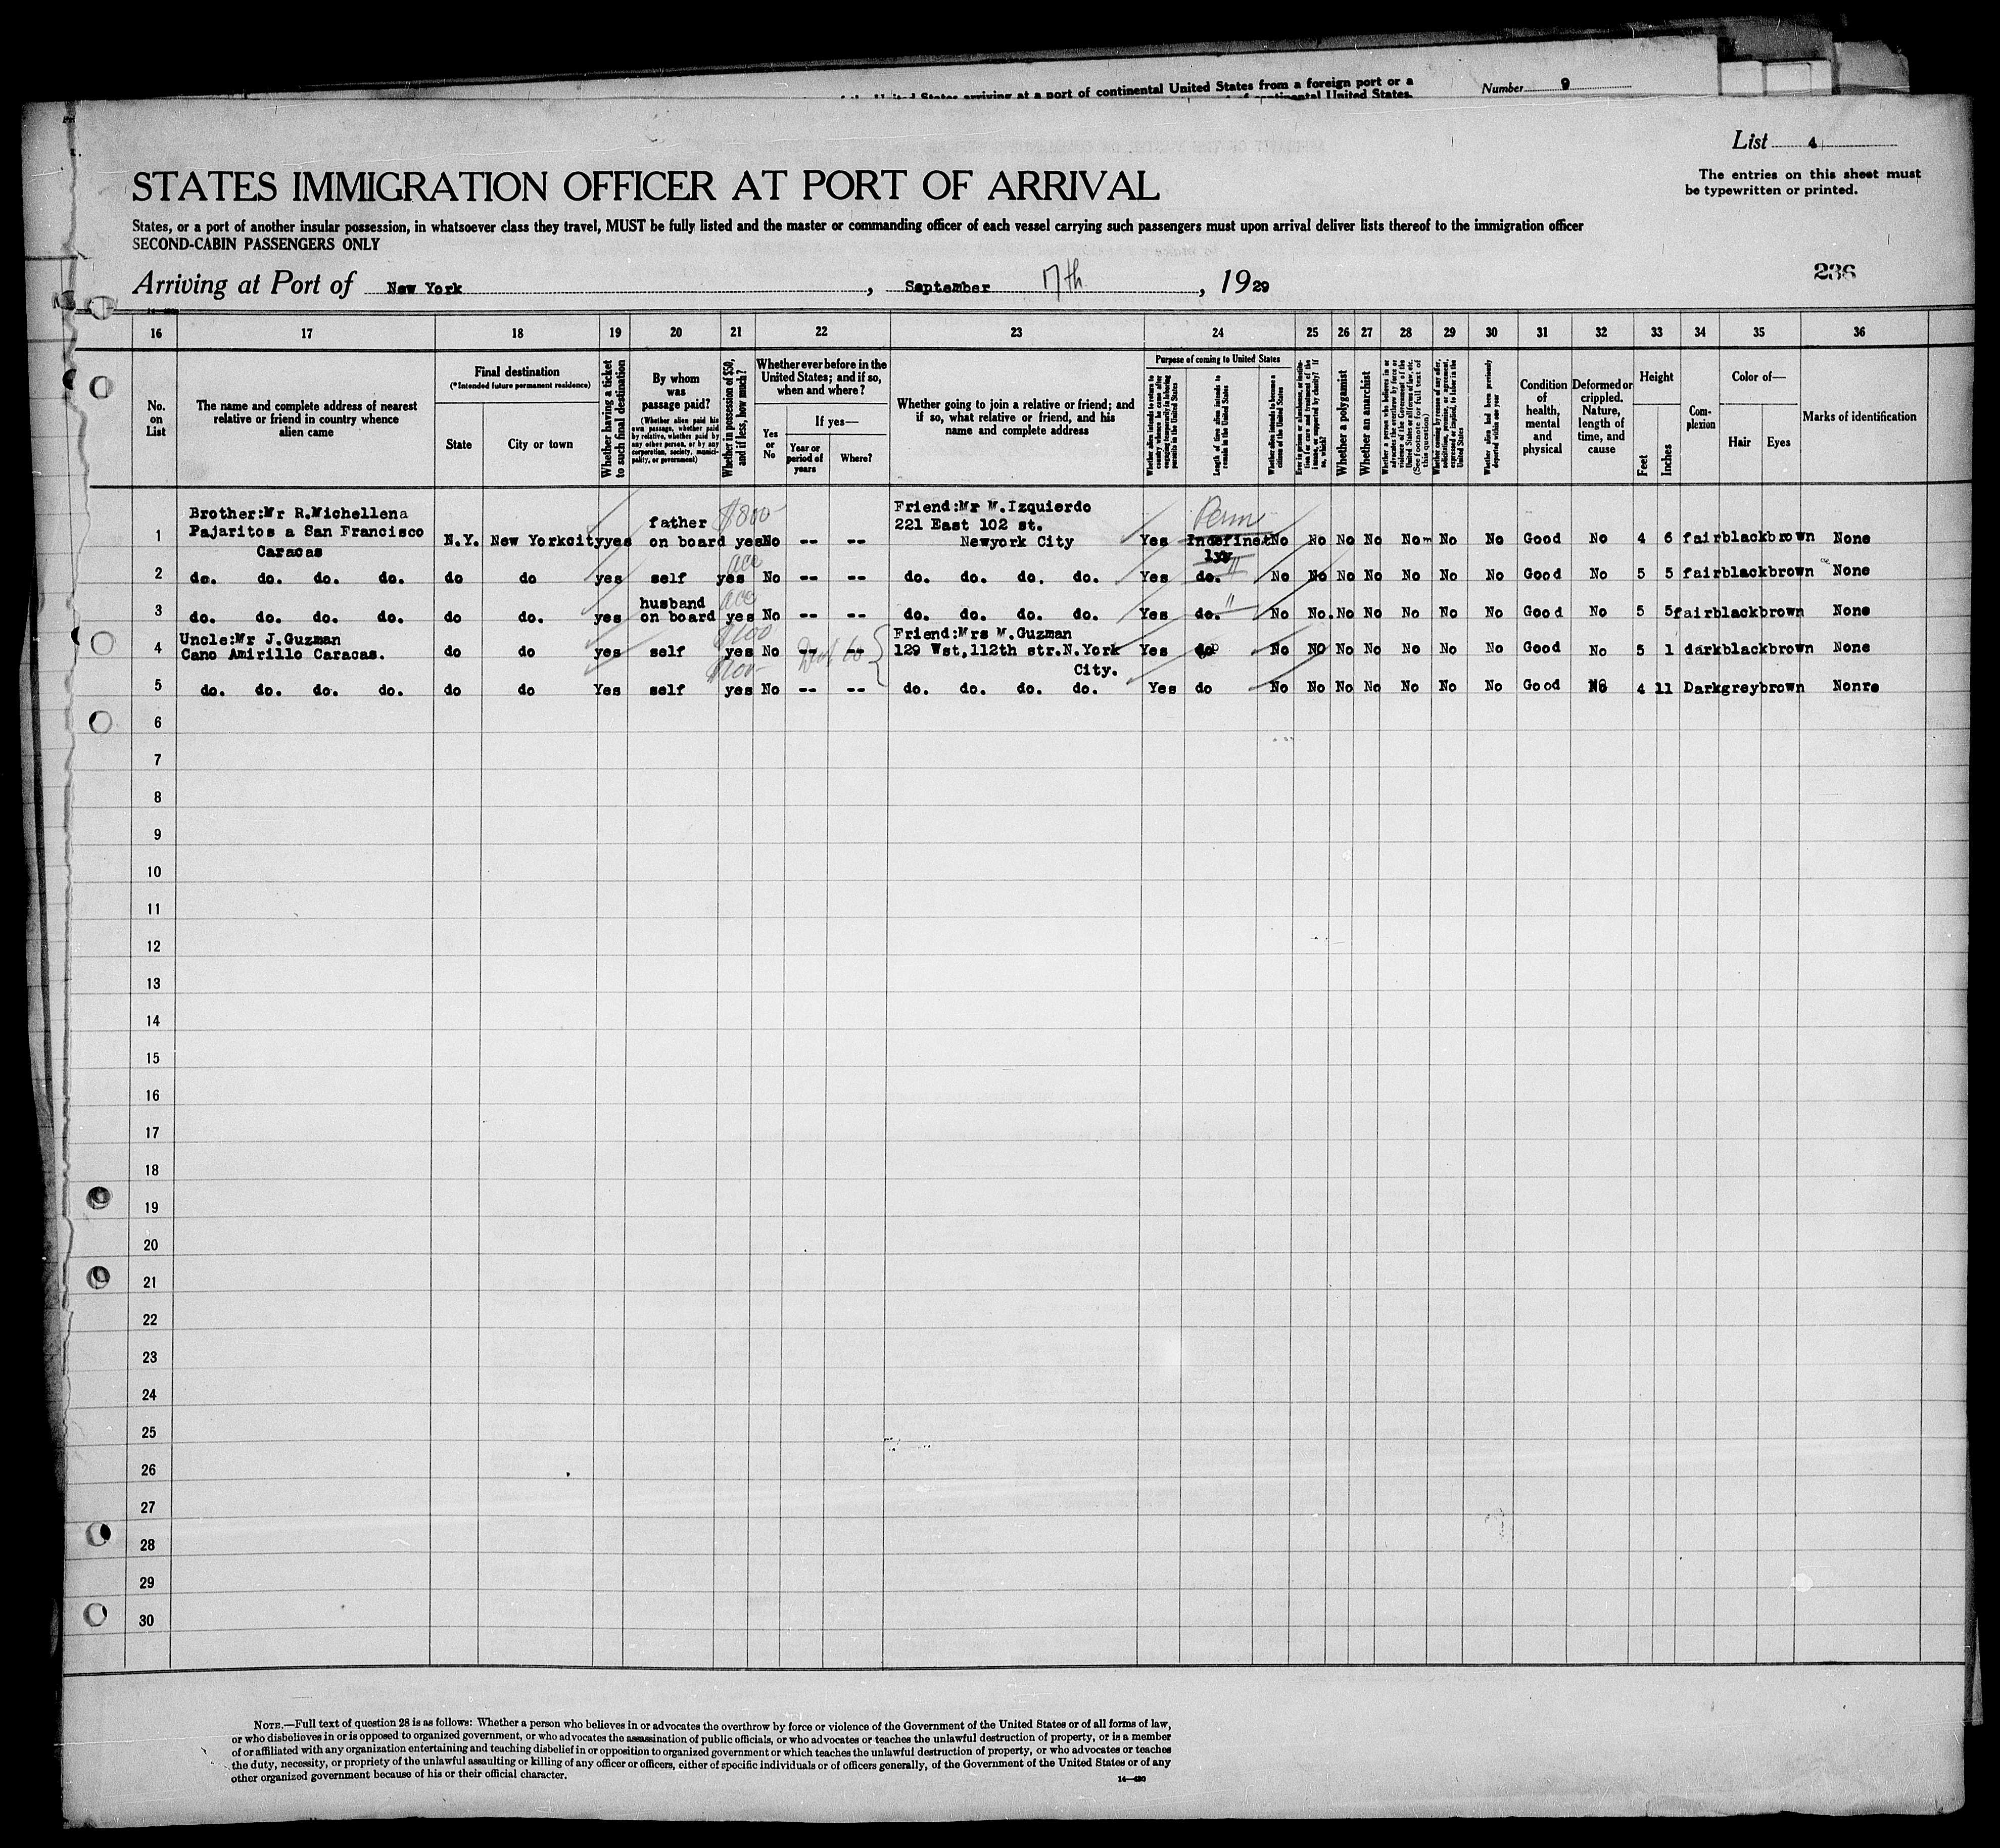 the United States arriving at a port of continental United States from a foreign port or a
Number 9
of continental United States.
List 4
The entries on this sheet must
be typewritten or printed.
STATES IMMIGRATION OFFICER AT PORT OF ARRIVAL
States, or a port of another insular possession, in whatsoever class they travel, MUST be fully listed and the master or commanding officer of each vessel carrying such passengers must upon arrival deliver lists thereof to the immigration officer
SECOND-CABIN PASSENGERS ONLY
236
Arriving at Port of New York, September 17th, 1929
16 17 18 19 20 21 22 23 24 25 26 27 28 29 30 31 32 33 34 35 36
No. on List
The name and complete address of nearest relative or friend in country whence alien came
Final destination
(*Intended future permanent residence)
State
City or town
Whether having a ticket to such final destination
By whom was passage paid?
(Whether alien paid his own passage, whether paid by relative, whether paid by any other person, or by any corporation, society, municipality, or government)
Whether in possession of $50, and if less, how much?
Whether ever before in the United States; and if so, when and where?
Yes or No
If yes—
Year or period of years
Where?
Whether going to join a relative or friend; and if so, what relative or friend, and his name and complete address
Purpose of coming to United States
Whether alien intends to return to country whence he came after engaging temporarily in laboring pursuits in the United States
Length of time alien intends to remain in the United States
Whether alien intends to become a citizen of the United States
Ever in prison or almshouse, or institution for care and treatment of the insane, or supported by charity? If so, which?
Whether a polygamist
Whether an anarchist
Whether a person who believes in or advocates the overthrow by force or violence of the Government of the United States or all forms of law, etc. (See footnote for full text of this question)
Whether coming by reason of any offer, solicitation, promise, or agreement, expressed or implied, to labor in the United States
Whether alien had been previously deported within one year
Condition of health, mental and physical
Deformed or crippled. Nature, length of time, and cause
Height
Feet
Inches
Complexion
Color of—
Hair
Eyes
Marks of identification
Brother:Mr R.Michellena
Pajaritos a San Francisco
Caracas
1 N.Y. New Yorkcity yes father on board $800 yes No -- -- Friend:Mr M.Izquierdo
221 East 102 st.
Newyork City
Yes Indefinetly Perm No No No No No No No Good No 4 6 fair black brown None
2 do. do. do. do. do do yes self acc yes No -- -- do. do. do. do. Yes do. " No No No No No No No Good No 5 5 fair black brown None
3 do. do. do. do. do do. yes husband on board acc yes No -- -- do. do. do. do. Yes do. " No No. No No No No No Good No 5 5 fair black brown None
Uncle:Mr J.Guzman
4 Cano Amirillo Caracas. do do yes self $100 yes No -- -- Friend:Mrs M.Guzman
129 Wst,112th str.N.York
City.
Yes do No NO No No No No No Good No 5 1 dark black brown None
5 do. do. do. do. do do Yes self $100- yes No -- -- do. do. do. do. Yes do No No No No No No No Good No 4 11 Dark grey brown Nonre
6
7
8
9
10
11
12
13
14
15
16
17
18
19
20
21
22
23
24
25
26
27
28
29
30
NOTE.—Full text of question 28 is as follows: Whether a person who believes in or advocates the overthrow by force or violence of the Government of the United States or of all forms of law,
or who disbelieves in or is opposed to organized government, or who advocates the assassination of public officials, or who advocates or teaches the unlawful destruction of property, or is a member
of or affiliated with any organization entertaining and teaching disbelief in or opposition to organized government or which teaches the unlawful destruction of property, or who advocates or teaches
the duty, necessity, or propriety of the unlawful assaulting or killing of any officer or officers, either of specific individuals or of officers generally, of the Government of the United States or of any
other organized government because of his or their official character.
14—480